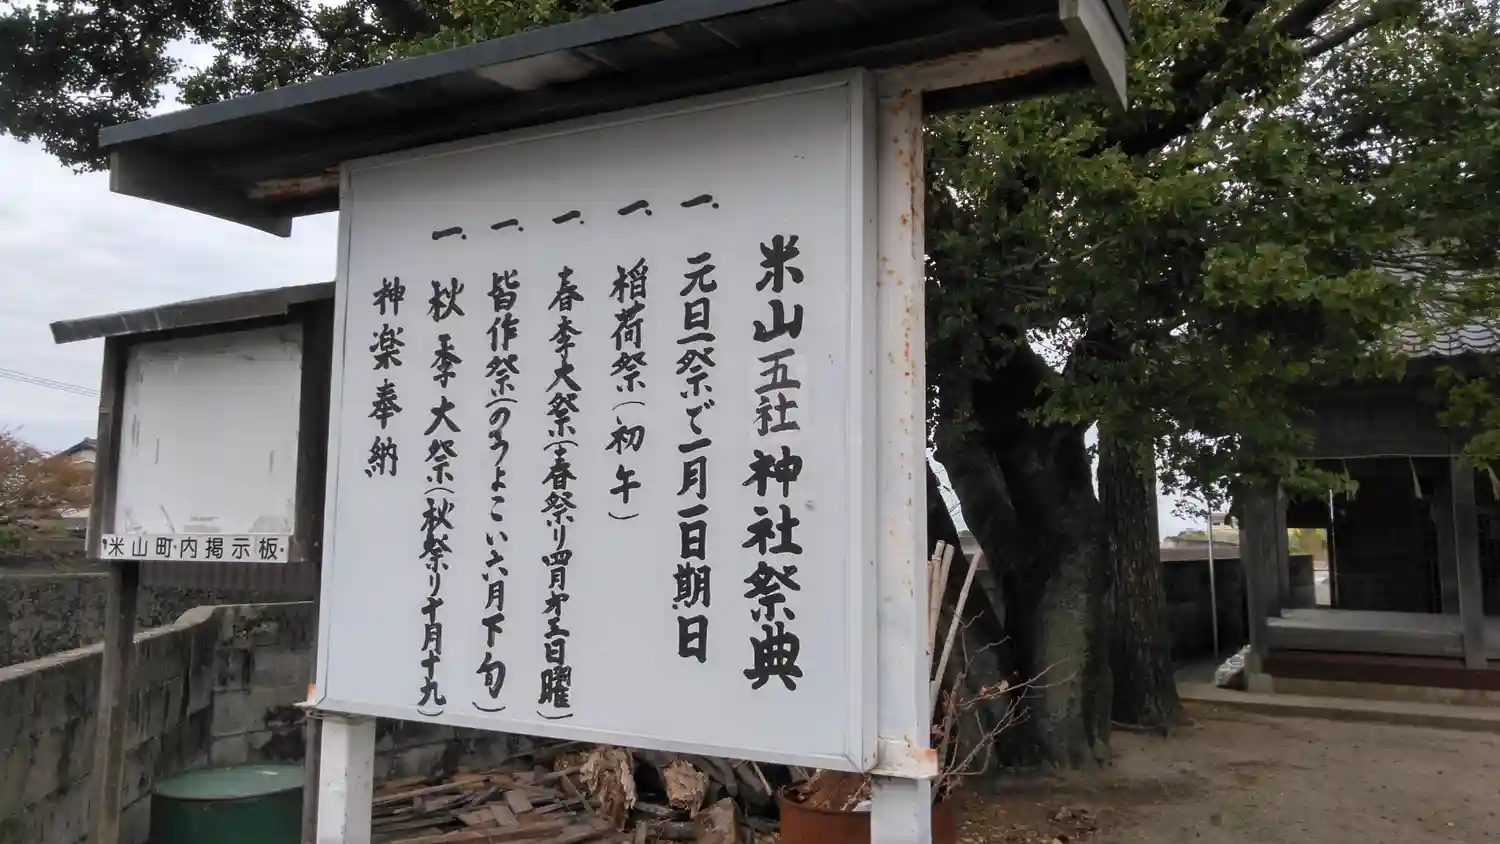 米山五社神社祭典
一、元旦祭で一月一日期日
一、稲荷祭(初午)
一、春季大祭(春祭り四月第三日曜)
一、皆作祭(のうよこい六月下旬)
一、秋季大祭(秋祭り十月十九)
神楽奉納
米山町内掲示板